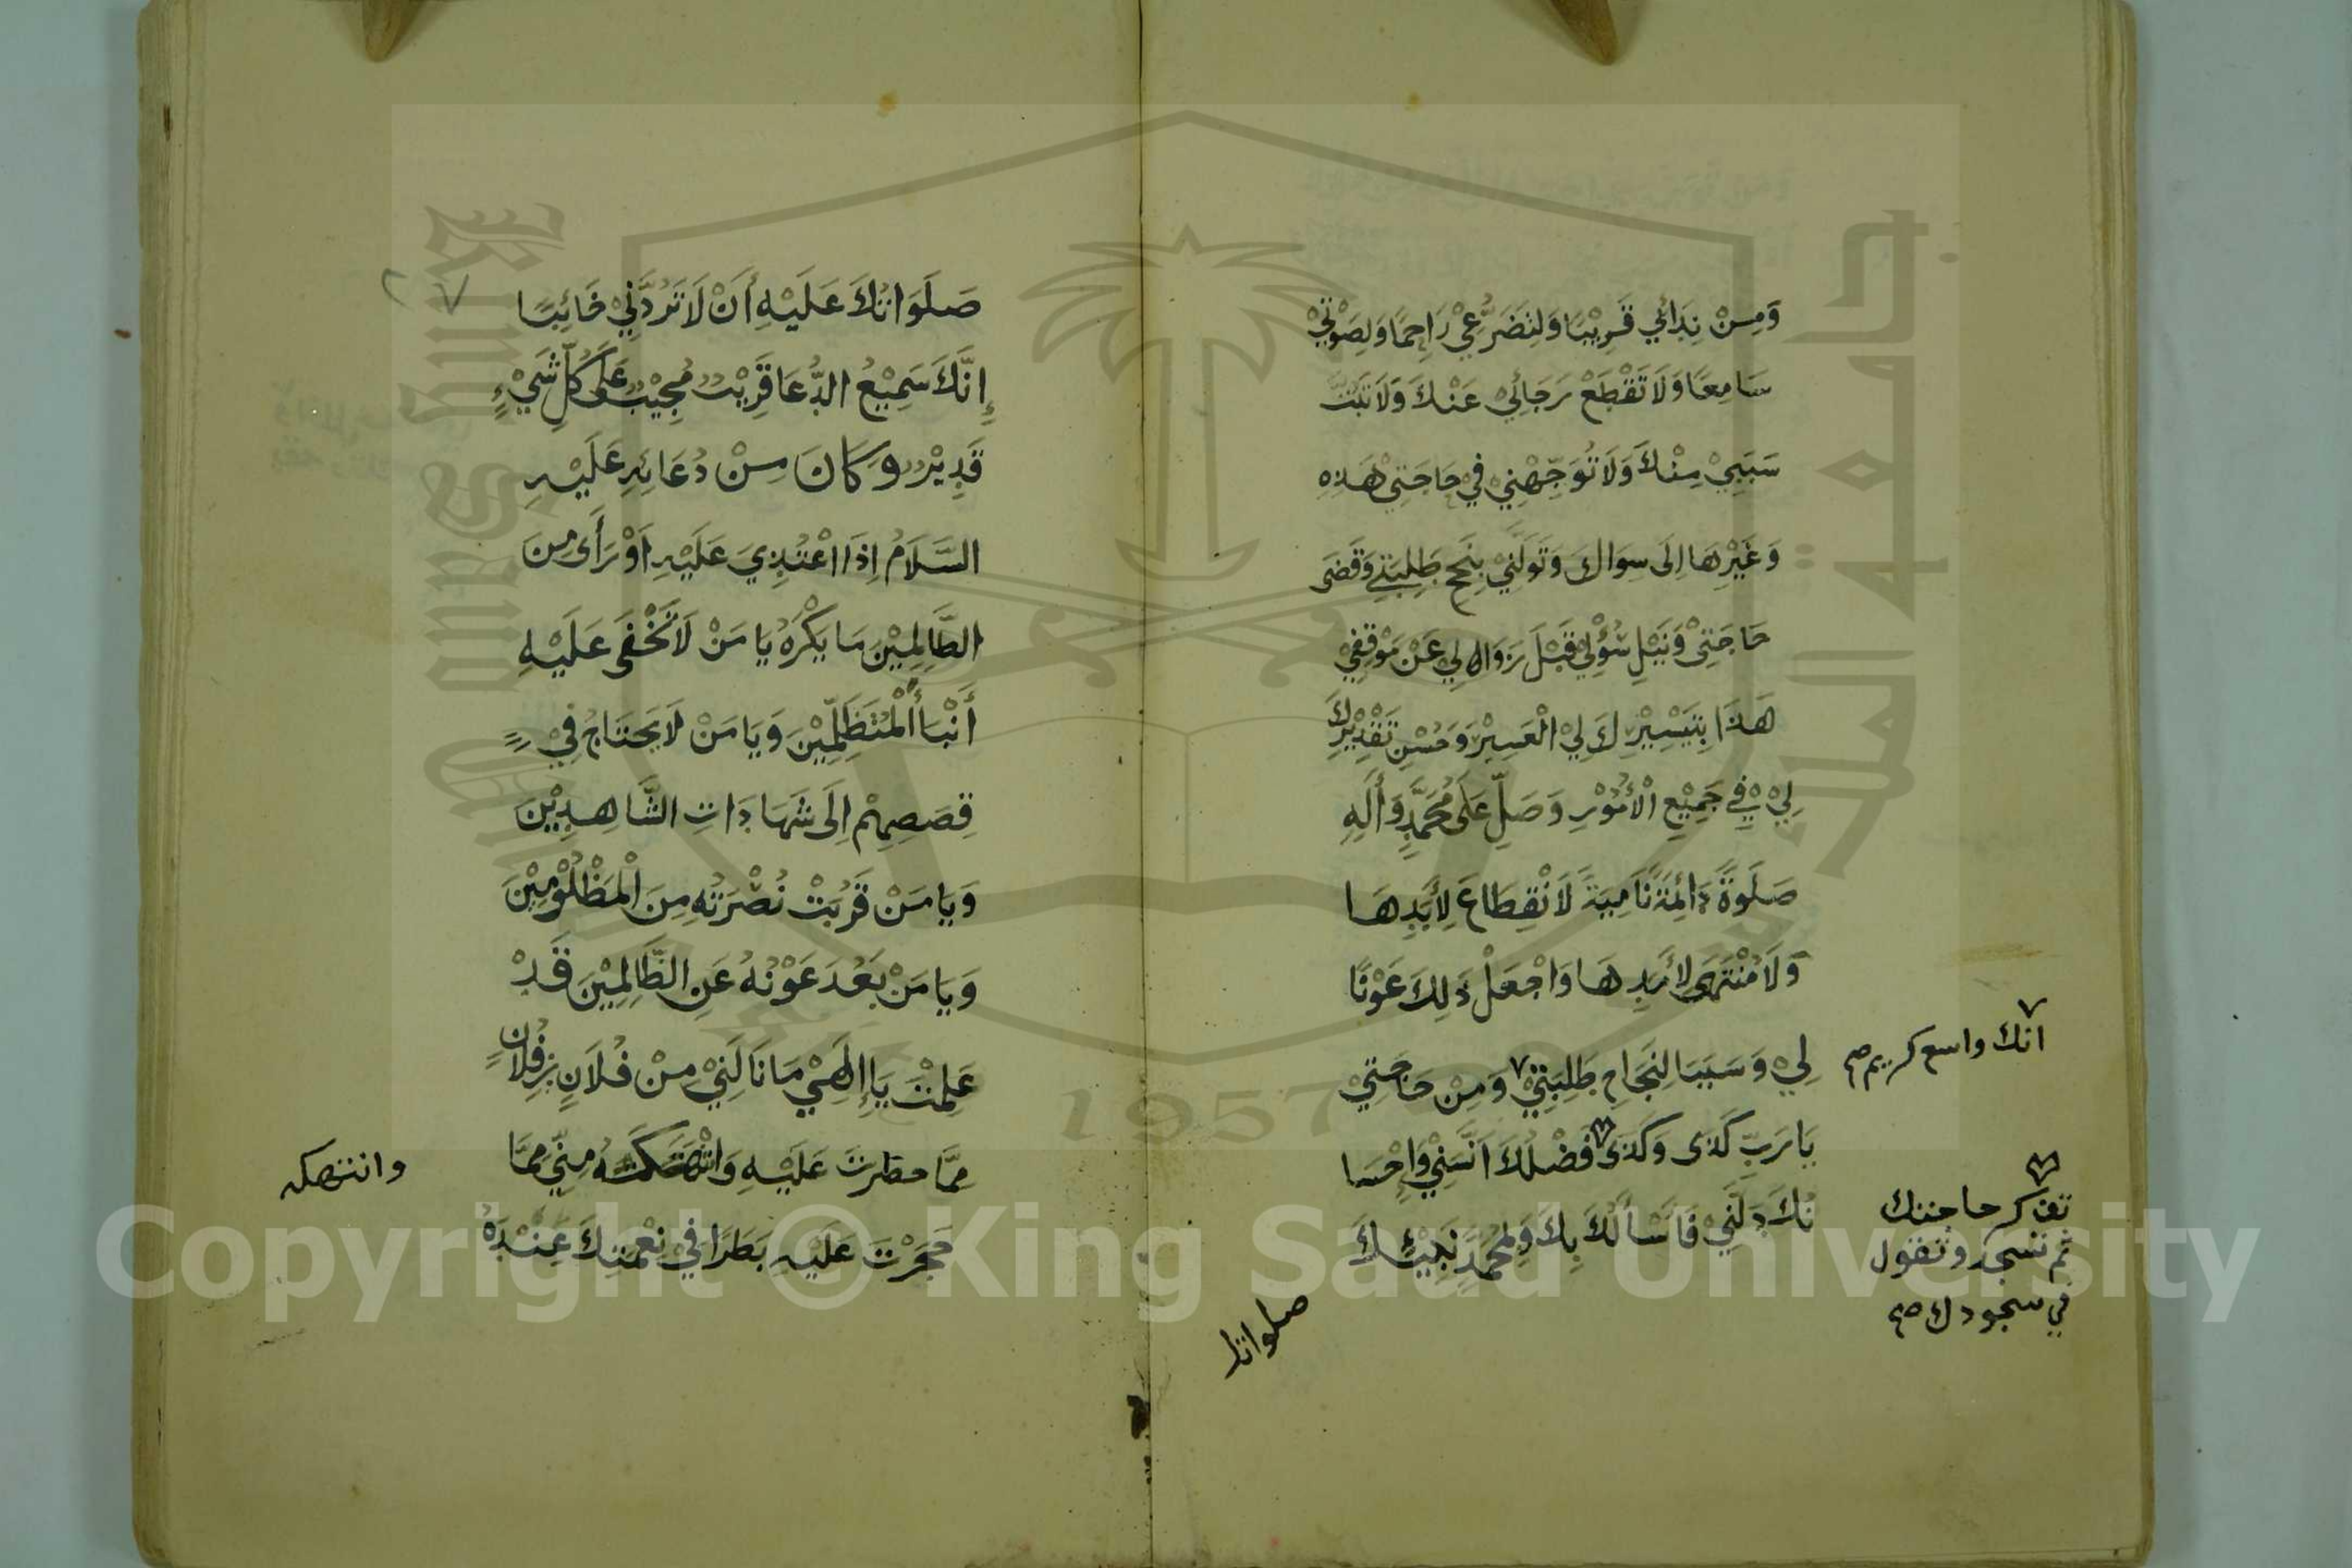 وَمِنْ نِدَائِي قَرِيْبًا وَلِتَضَرُّعِيْ رَاحِمًا وَلِصَوْتِيْ
سَامِعًا وَلَا تَقْطَعْ رَجَائِيْ عَنْكَ وَلَا تَبُتَّ
سَبَبِيْ مِنْكَ وَلَا تُوَجِّهْنِيْ فِيْ حَاجَتِيْ هَذِهِ
وَغَيْرِهَا اِلَى سِوَاكَ وَتَوَلَّنِيْ بِنُجْحِ طَلِبَتِيْ وَقَضَى
حَاجَتِيْ وَنَيْلِ سُؤْلِيْ قَبْلَ زَوَالِي عَنْ مَوْقِفِيْ
هَذَا بِتَيْسِيْرِكَ لِيْ الْعَسِيْرَ وَحُسْنِ تَقْدِيْرِكَ
لِيْ فِيْ جَمِيْعِ الْأُمُوْرِ وَصَلِّ عَلَى مُحَمَّدٍ وَأَلِهِ
صَلَوةً دَائِمَةً نَامِيَةً لَا نْقِطَاعَ لِأَبَدِهَا
وَلَا مُنْتَهَى لِأَمَدِهَا وَاجْعَلْ ذَلِكَ عَوْنًا
لِيْ وَسَبَبًا لِنَجَاحِ طَلِبَتِيْ ٧ وَمِنْ حَاجَتِيْ
٧
انك واسع كريم صح
يَا رَبِّ كَذَى وَكَذَى فَضْلُكَ اَنَّسَنِيْ وَإِحْسَا
نُكَ دَلَّنِيْ فَأَسْأَلُكَ بِكَ وَبِمُحَمَّدٍ نَبِيِّكَ
تذكر حاجتك
ثم تسجد وتقول
في سجودك صح
صلواتك
صَلَوَاتُكَ عَلَيْهِ أَنْ لَا تَرُدَّنِيْ خَائِبًا
إِنَّكَ سَمِيْعُ الدُّعَا قَرِيْبٌ مُجِيْبٌ عَلَى كُلِّ شَيْءٍ
قَدِيْرٌ وَكَانَ مِنْ دُعَائِهِ عَلَيْهِ
السَّلَامُ اِذَا اعْتُدِيَ عَلَيْهِ اَوْ رَأَى مِنَ
الظَّالِمِيْنَ مَا يَكْرَهُ يَا مَنْ لَا تَخْفَى عَلَيْهِ
أَنْبَأُ الْمُتَظَلِّمِيْنَ وَيَا مَنْ لَا يَحْتَاجُ فِيْ
قِصَصِهِمْ اِلَى شَهَادَاتِ الشَّاهِدِيْنَ
وَيَا مَنْ قَرُبَتْ نُصْرَتُهُ مِنَ الْمَظْلُوْمِيْنَ
وَيَا مَنْ بَعُدَ عَوْنُهُ عَنِ الظَّالِمِيْنَ قَدْ
عَلِمْتَ يَا إِلَهِيْ مَا نَالَنِيْ مِنْ فُلَانِ بْنِ فُلَانٍ
مِمَّا حظرت عَلَيْهِ وَانْتَهَكَهُ مِنِّيْ مِمَّا
وانتهكه
حَجَرْتَ عَلَيْهِ بَطَرًا فِيْ نِعْمَتِكَ عِنْدَهُ
1957
Copyright © King Saud University